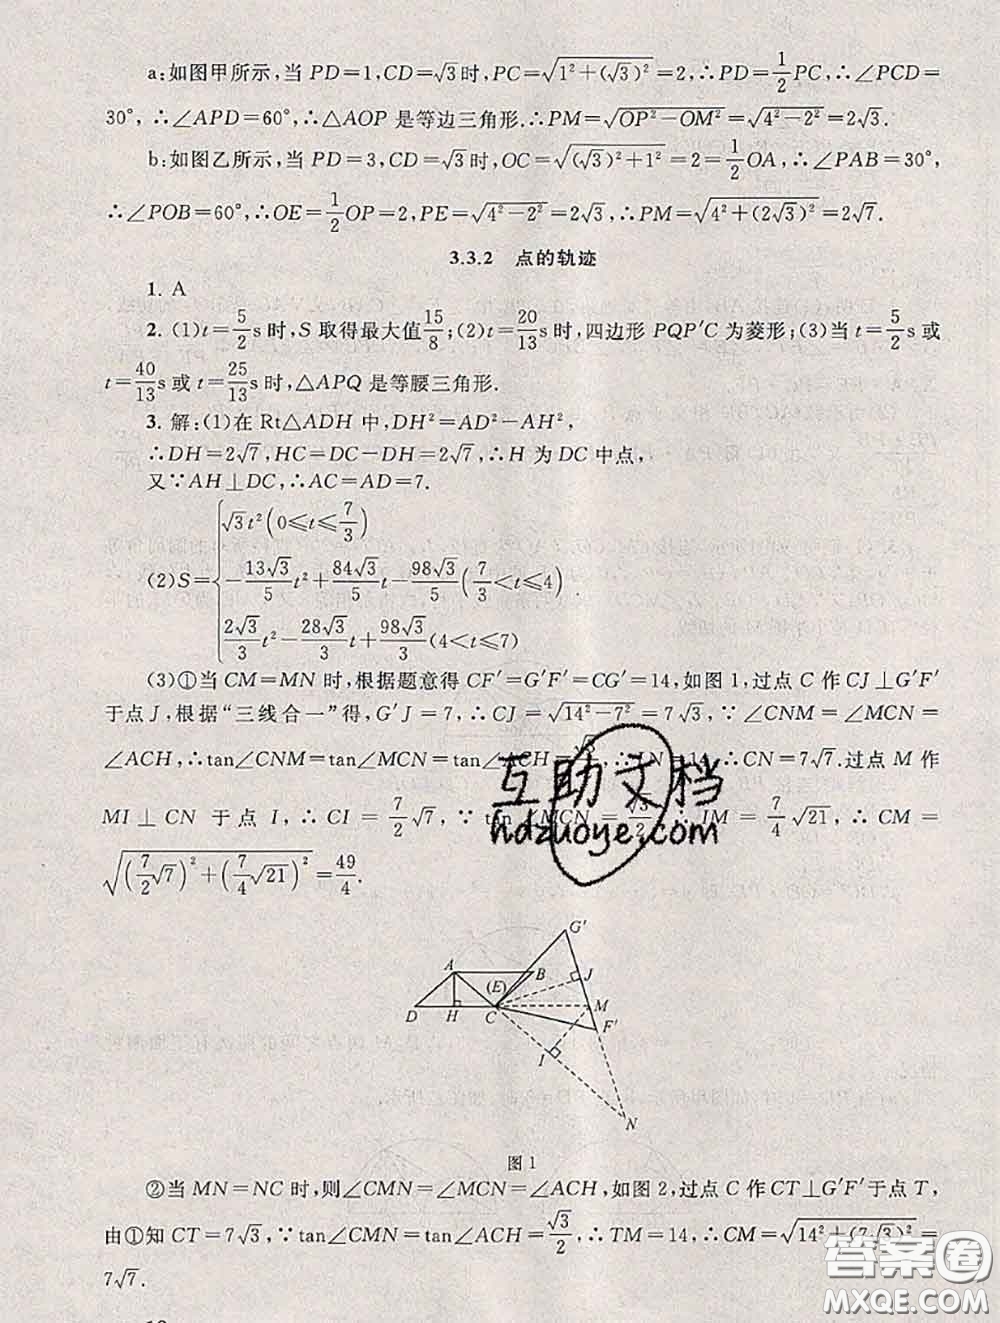 a:如图甲所示,当 PD=1,CD=√3时,PC=√(1²+(√3)²)=2,∴PD=1/2PC,∴∠PCD=
30°,∴∠APD=60°,∴△AOP 是等边三角形.∴PM=√(OP²-OM²)=√(4²-2²)=2√3.
b:如图乙所示,当 PD=3,CD=√3时,OC=√((√3)²+1²)=2=1/2OA,∴∠PAB=30°,
∴∠POB=60°,∴OE=1/2OP=2,PE=√(4²-2²)=2√3,∴PM=√(4²+(2√3)²)=2√7.
3.3.2 点的轨迹
1. A
2. (1)t=5/2s时,S取得最大值15/8;(2)t=20/13s时,四边形 PQP′C 为菱形;(3)当 t=5/2s或
t=40/13s或 t=25/13s时,△APQ 是等腰三角形.
3. 解:(1)在 Rt△ADH 中,DH²=AD²-AH²,
∴DH=2√7,HC=DC-DH=2√7,∴H 为 DC 中点,
又∵AH⊥DC,∴AC=AD=7.
√3t²(0≤t≤7/3)
(2)S={-13√3/5t²+84√3/5t-98√3/5(7/3<t≤4).
2√3/3t²-28√3/3t+98√3/3(4<t≤7)
(3)①当 CM=MN 时,根据题意得 CF′=G′F′=CG′=14,如图 1,过点 C 作 CJ⊥G′F′
于点 J,根据“三线合一”得,G′J=7,∴CJ=√(14²-7²)=7√3,∵∠CNM=∠MCN=
∠ACH,∴tan∠CNM=tan∠MCN=tan∠ACH=√3/2,∴JN=14,∴CN=7√7.过点 M 作
MI⊥CN 于点 I,∴CI=7/2√7,∵tan∠MCN=√3/2,∴IM=7/4√21,∴CM=
√((7/2√7)²+(7/4√21)²)=49/4.
互助文档
hdzuoye.com
G′
A
B
J
(E)
D
H
C
M
F′
I
N
图 1
②当 MN=NC 时,则∠CMN=∠MCN=∠ACH,如图 2,过点 C 作 CT⊥G′F′于点 T,
由①知 CT=7√3,∵tan∠CMN=tan∠ACH=√3/2,∴TM=14,∴CM=√(14²+(7√3)²)=
7√7.
答案圈
MXQE.COM